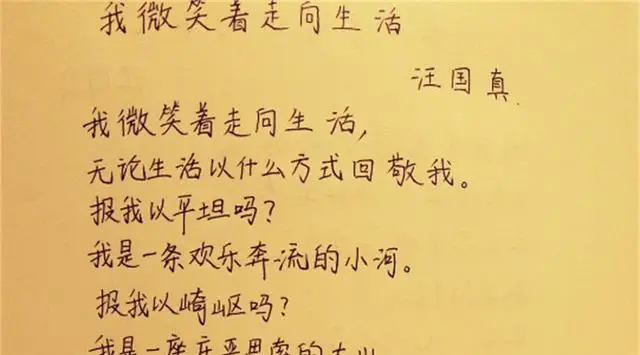 我微笑着走向生活
汪国真
我微笑着走向生活,
无论生活以什么方式回敬我。
报我以平坦吗?
我是一条欢乐奔流的小河。
报我以崎岖吗?
我是一座庄严思索的大山